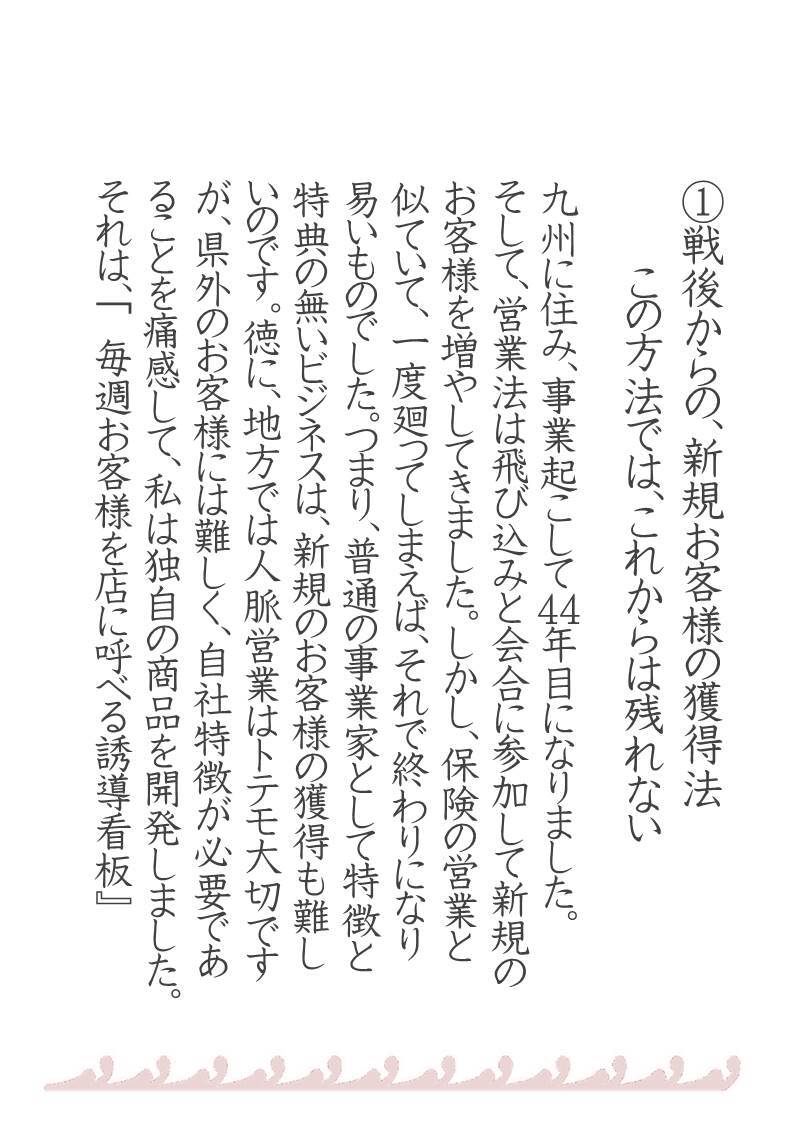 ①戦後からの、新規お客様の獲得法
この方法では、これからは残れない
九州に住み、事業起こして44年目になりました。
そして、営業法は飛び込みと会合に参加して新規の
お客様を増やしてきました。しかし、保険の営業と
似ていて、一度廻ってしまえば、それで終わりになり
易いものでした。つまり、普通の事業家として特徴と
特典の無いビジネスは、新規のお客様の獲得も難し
いのです。徳に、地方では人脈営業はトテモ大切です
が、県外のお客様には難しく、自社特徴が必要であ
ることを痛感して、私は独自の商品を開発しました。
それは、「 毎週お客様を店に呼べる誘導看板』